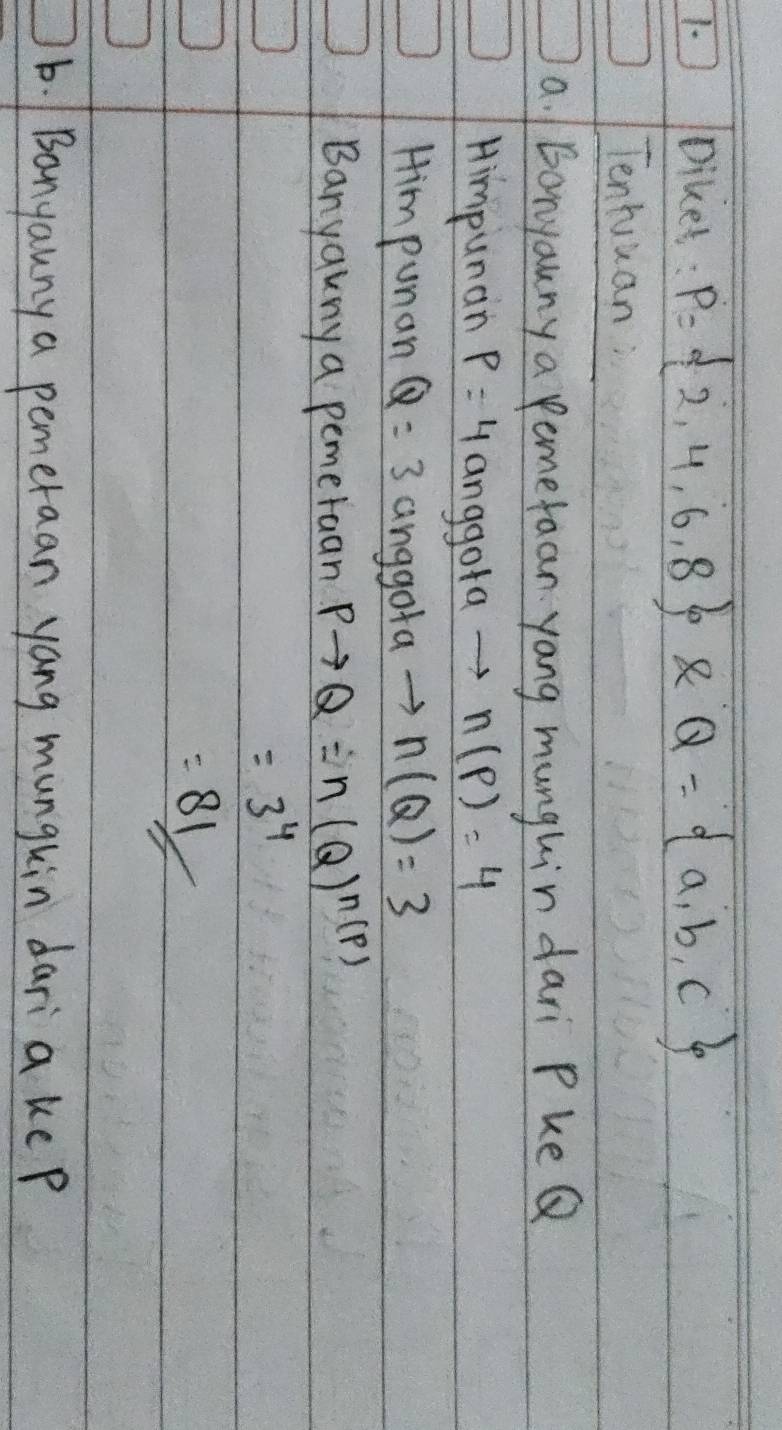 1. Diket : P = {2, 4, 6, 8} & Q = {a, b, c}
Tentukan
a. Banyaknya Pemetaan yang mungkin dari P ke Q
Himpunan P = 4 anggota → n(P) = 4
Himpunan Q = 3 anggota → n(Q) = 3
Banyaknya pemetaan P → Q = n(Q)ⁿ⁽ᴾ⁾
= 3⁴
= 81
b. Banyaknya pemetaan yang mungkin dari Q ke P